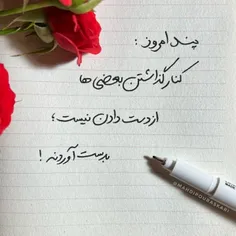 پند امروز :
کنار گذاشتن بعضی ها
از دست دادن نیست؛
بدست آوردنه !
@MAHDIHOURASKARI